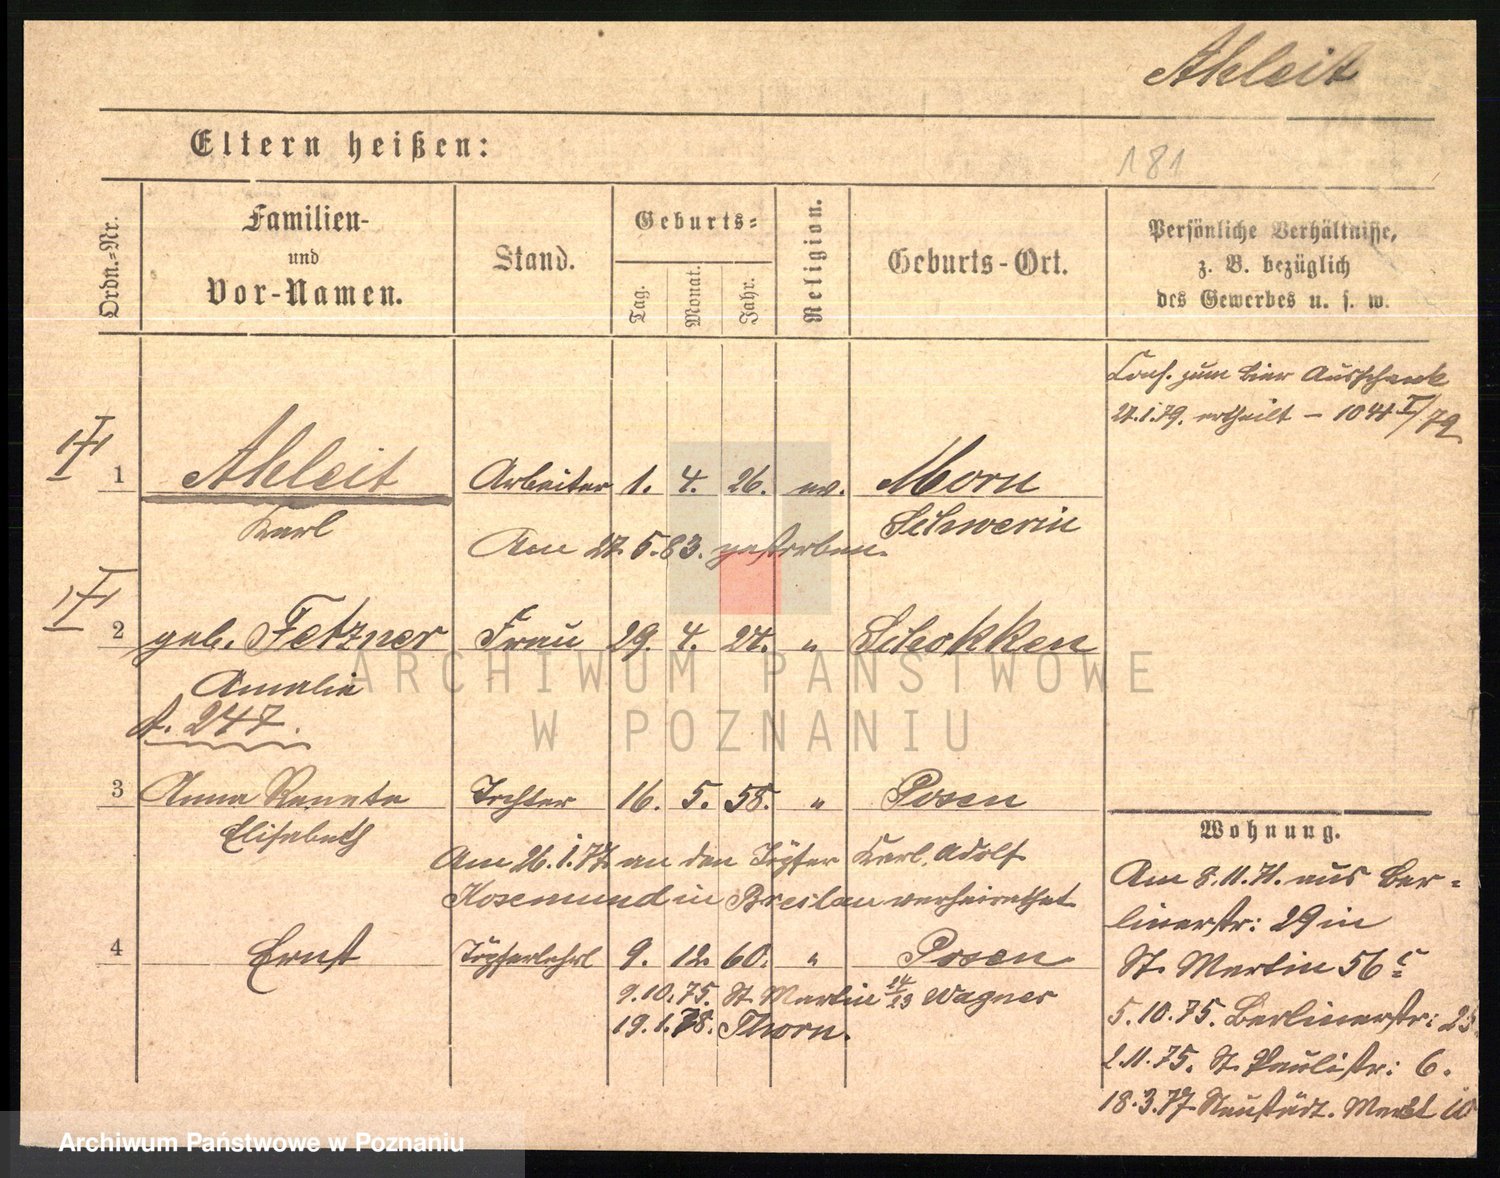 Ahleit
Eltern heißen:
181
Ordn.-Nr.
Familien-
und
Vor-Namen.
Stand.
Geburts-
Tag.
Monat.
Jahr.
Religion.
Geburts-Ort.
Persönliche Verhältnisse,
z. B. bezüglich
des Gewerbes u. s. w.
Cons. zum Bier Ausschank
27.1.79. ertheilt – 1044 I/79
1 Ahleit Arbeiter 1. 4. 26. ev. Morn
Karl Schwerin
Am 27.5.83. gestorben.
2 geb. Fetzner Frau 29. 4. 27. " Schokken
Amalie
f. 247.
3 Anna Renate Tochter 16. 5. 58. " Posen
Elisabeth
Am 26.1.77 an den Töpfer Karl Adolf
Rosemund in Breslau verheirathet
4 Ernst Töpferlehrl 9. 12. 60. " Posen
9.10.75. St. Martin 14/13 Wagner
19.1.78. Thorn.
Wohnung.
Am 8.11.71. aus Ber-
linerstr: 29 in
St. Martin 56
5.10.75. Berlinerstr:
2.11.75. St. Paulistr: 6.
18.3.77 Neustädt. Markt 10
ARCHIWUM PAŃSTWOWE
W POZNANIU
Archiwum Państwowe w Poznaniu